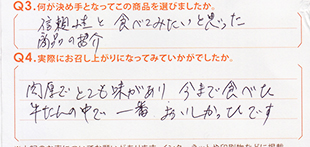 Q3.何が決め手となってこの商品を選びましたか。
信頼性と食べてみたいと思った
商品の紹介
Q4.実際にお召し上がりになってみていかがでしたか。
肉厚でとても味があり 今まで食べた
牛たんの中で一番 おいしかったです